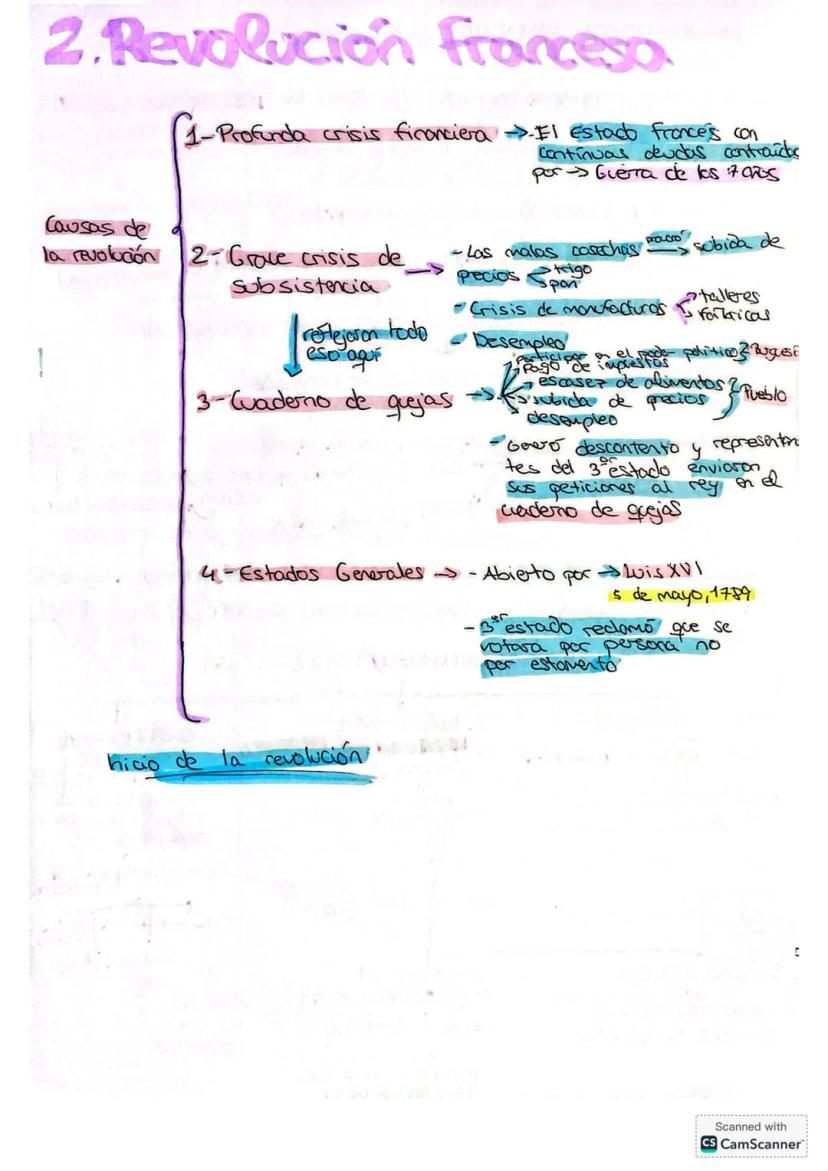 2. Revolución francesa
Causas de
la revolución
1- Profunda crisis financiera → - El Estado francés con
continuas deudas contraídas
por → Guerra de los 7 años
2- Grave crisis de
subsistencia →
- Las malas cosechas provocó → subida de
precios < trigo
pan
- Crisis de manufacturas < talleres
fábricas
- Desempleo
↓ reflejaron todo
eso aquí
3- Cuaderno de quejas →
participar en el poder político
pago de impuestos } Burgues
escasez de alimentos
subida de precios } Pueblo
desempleo
- Generó descontento y representan
tes del 3er estado enviaron
sus peticiones al rey en el
cuaderno de quejas
4- Estados Generales → - Abierto por → Luis XVI
5 de mayo, 1789
- 3er estado reclamó que se
votara por persona no
por estamento
Inicio de la revolución
Scanned with
CS CamScanner